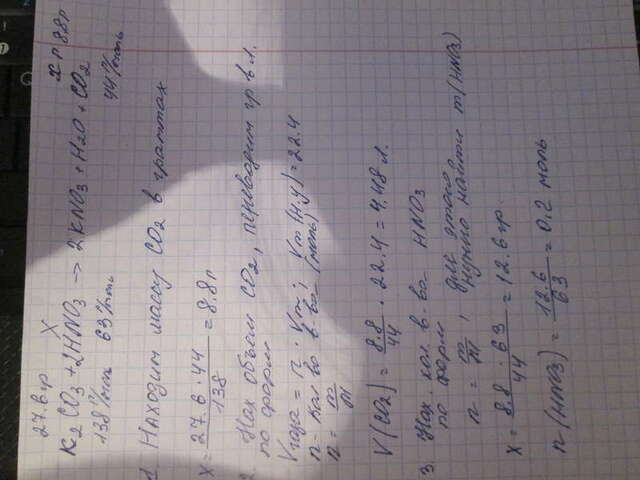 27.6гр X X гр 8.8гр
K2CO3 + 2HNO3 → 2KNO3 + H2O + CO2
138 г/моль 63 г/моль 44 г/моль
1. Находим массу CO2 в граммах
X = 27.6 · 44 / 138 = 8.8г
2. Нах объем CO2, переводим гр в л.
по форм
Vгаза = n · Vm; Vm (н.у) = 22.4
n - кол во в-ва (моль);
n = m/M
V(CO2) = 8.8/44 · 22.4 = 4.48 л.
3 Нах. кол. в-ва HNO3
по форм
n = m/M, для этого нужно найти m(HNO3)
X = 8.8 · 63 / 44 = 12.6 гр.
n(HNO3) = 12.6/63 = 0.2 моль